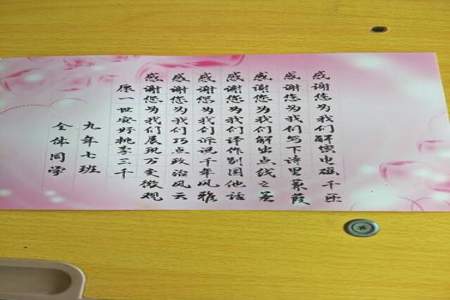 感谢您为我们解密电磁千
感谢您为我们写下诗里暮霞
感谢您为我们解出点线之
感谢您为我们译作别国他话
感谢您为我们诉说千年风雅
感谢您为我们巧点政治风云
感谢您为我们展现万变微观
愿一世安好桃李三千
九年七班
全体同学